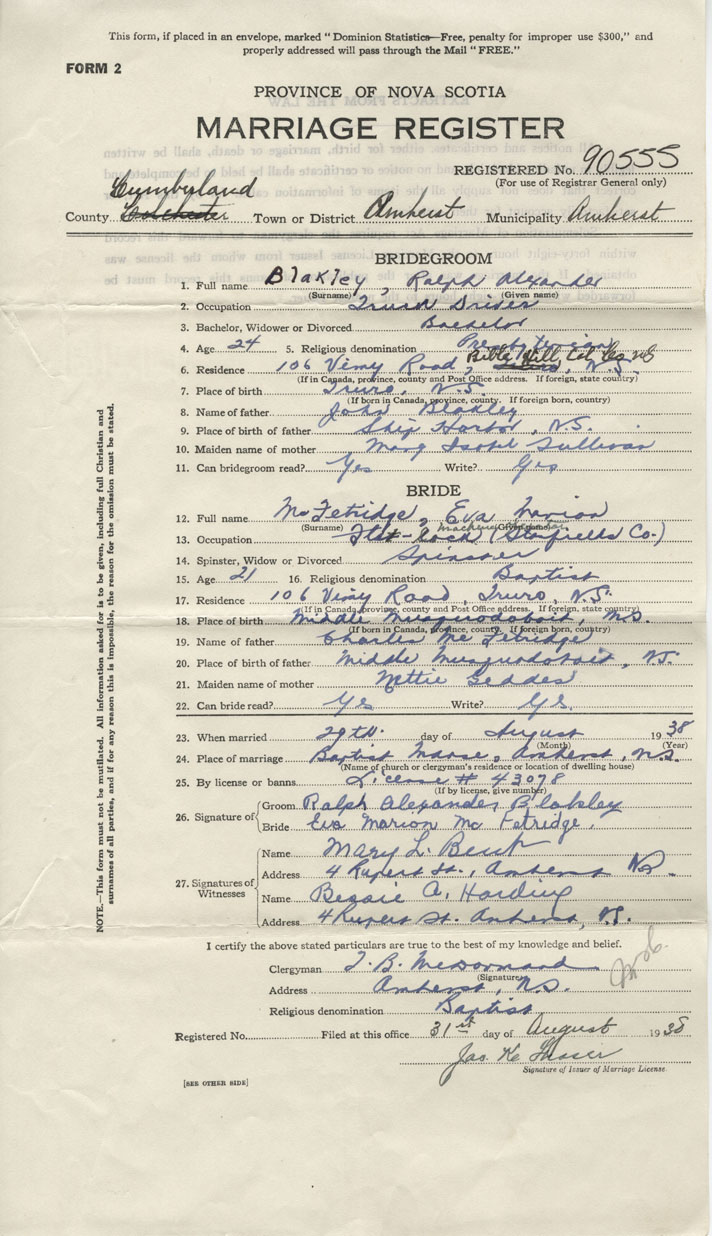 This form, if placed in an envelope, marked "Dominion Statistics—Free, penalty for improper use $300," and
properly addressed will pass through the Mail "FREE."
FORM 2
PROVINCE OF NOVA SCOTIA
MARRIAGE REGISTER
REGISTERED No. 90555
(For use of Registrar General only)
Cumberland
County Colchester Town or District Amherst Municipality Amherst
BRIDEGROOM
1. Full name Blakley, Ralph Alexander
(Surname) (Given name)
2. Occupation Truck Driver
3. Bachelor, Widower or Divorced Bachelor
4. Age 24 5. Religious denomination Presbyterian
Bible Hill, Col. Co. NS
6. Residence 106 Vimy Road, Truro, N.S.
(If in Canada, province, county and Post Office address. If foreign, state country)
7. Place of birth Truro, N.S.
(If born in Canada, province, county. If foreign born, country)
8. Name of father John Blakley
9. Place of birth of father Ship Harbor, N.S.
10. Maiden name of mother Mary Isobel Sullivan
11. Can bridegroom read? Yes Write? Yes
BRIDE
12. Full name McFetridge, Eva Marion
(Surname) (Given name)
13. Occupation Flat-lock (Stanfields Co.)
14. Spinster, Widow or Divorced Spinster
15. Age 21 16. Religious denomination Baptist
17. Residence 106 Vimy Road, Truro, N.S.
(If in Canada, province, county and Post Office address. If foreign, state country)
18. Place of birth Middle Musquodoboit, N.S.
(If born in Canada, province, county. If foreign born, country)
19. Name of father Charles McFetridge
20. Place of birth of father Middle Musquodoboit, N.S.
21. Maiden name of mother Nettie Geddes
22. Can bride read? Yes Write? Yes.
23. When married 29th. day of August 1938
(Month) (Year)
24. Place of marriage Baptist Manse, Amherst, N.S.
(Name of church or clergyman's residence or location of dwelling house)
25. By license or banns License # 43078
(If by license, give number)
26. Signature of Groom Ralph Alexander Blakley
Bride Eva Marion McFetridge.
27. Signatures of Witnesses
Name Mary L. Bent
Address 4 Rupert St., Amherst NS.
Name Bessie A. Harding
Address 4 Rupert St. Amherst, N.S.
I certify the above stated particulars are true to the best of my knowledge and belief.
Clergyman T. B. McDormand
(Signature)
Address Amherst, N.S.
Religious denomination Baptist
Registered No. Filed at this office 31st day of August 1938
Jas. H.
Signature of Issuer of Marriage License
[SEE OTHER SIDE]
NOTE.—This form must not be mutilated. All information asked for is to be given, including full Christian and
surnames of all parties, and if for any reason this is impossible, the reason for the omission must be stated.